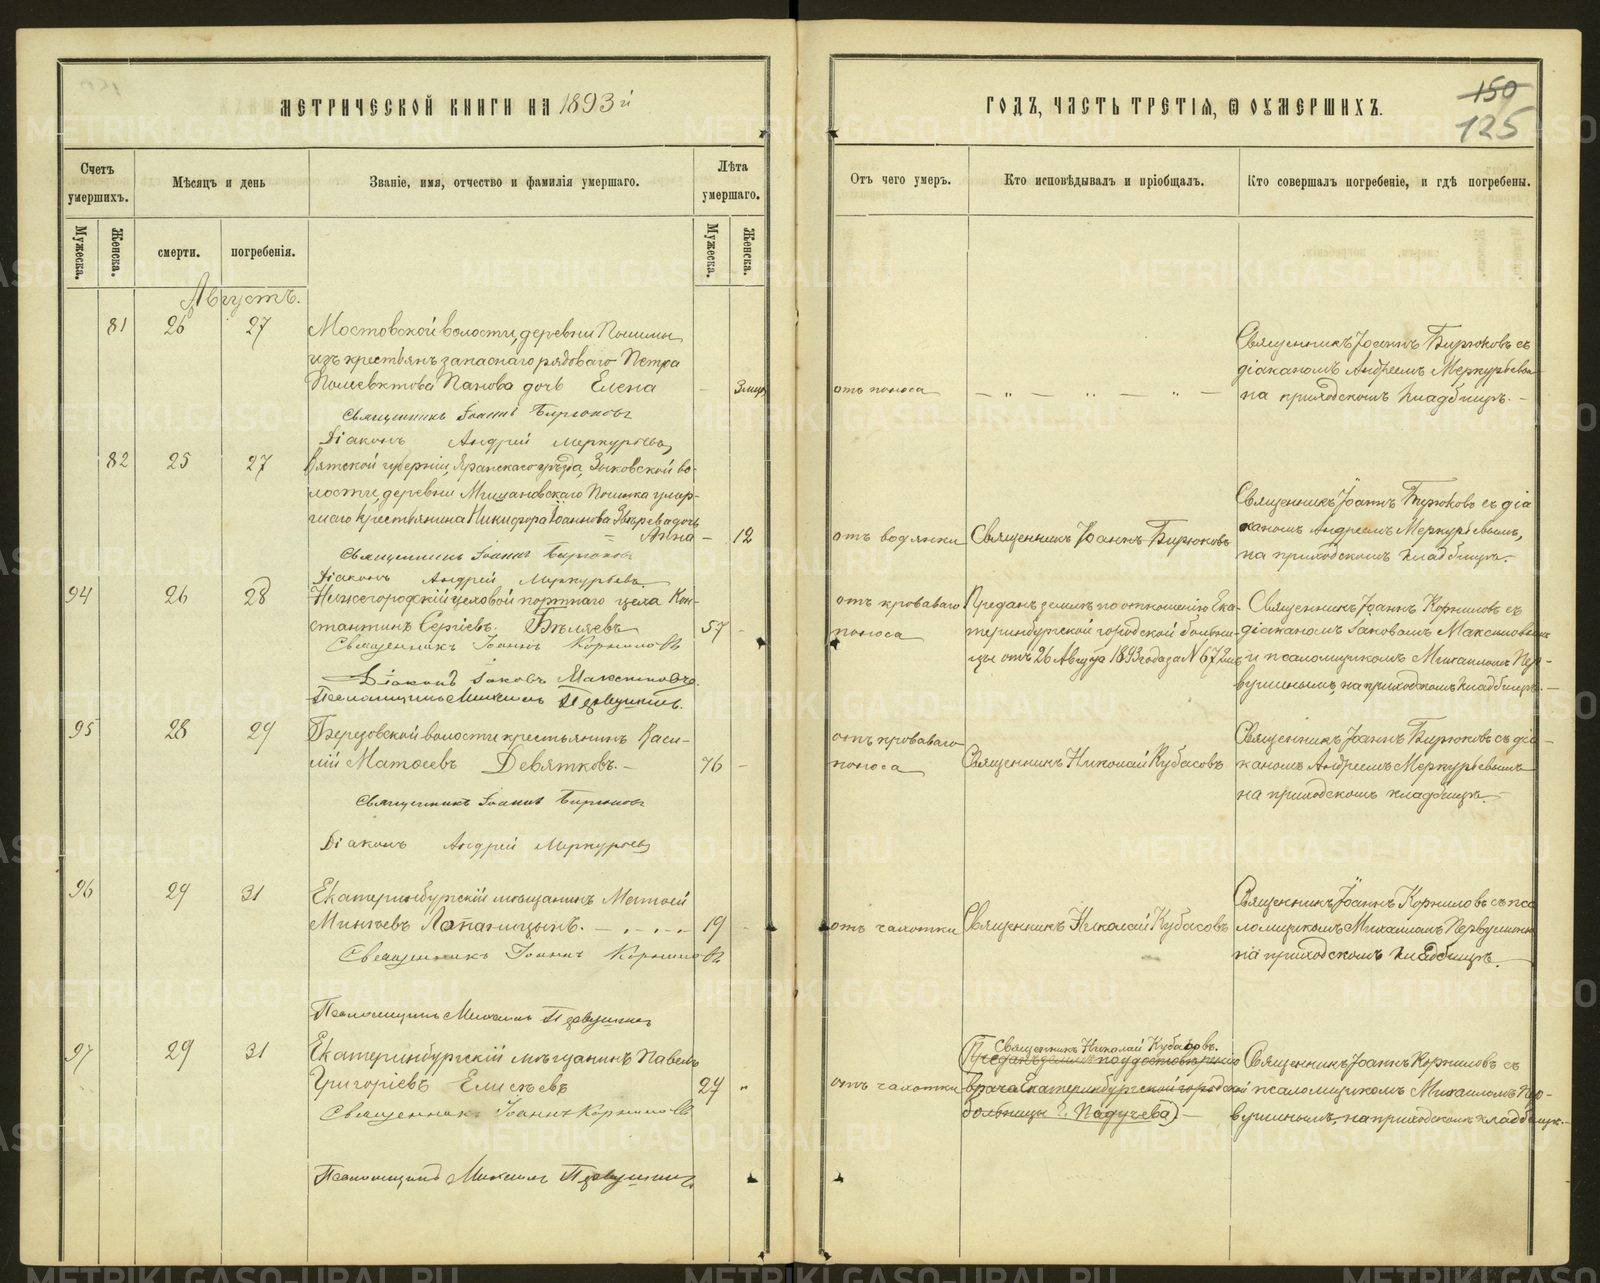 МЕТРИЧЕСКОЙ КНИГИ НА 1893й
ГОДЪ, ЧАСТЬ ТРЕТІЯ, Ѿ ОУМЕРШИХЪ.
150
125
Счетъ умершихъ.
Мѣсяцъ и день
Званіе, имя, отчество и фамилія умершаго.
Лѣта умершаго.
Отъ чего умеръ.
Кто исповѣдывалъ и пріобщалъ.
Кто совершалъ погребеніе, и гдѣ погребены.
Мужеска.
Женска.
смерти.
погребенія.
Мужеска.
Женска.
Августъ.
81 26 27
Мостовской волости, деревни
изъ крестьянъ запаснаго рядоваго Петра
Полиевктова Панова дочь Елена
3 мѣс.
отъ поноса
Священникъ Іоаннъ Бирюковъ съ
діакономъ Андреемъ Меркурьевы
на приходскомъ кладбищѣ.
Священникъ Іоаннъ Бирюковъ
Діаконъ Андрей Меркурьевъ
82 25 27
Вятской губерніи, Яранскаго уѣзда, Зыковской во-
лости, деревни Мишановскаго Починка умер-
шаго крестьянина Никифора Іоаннова Звѣрева дочь
Анна — 12
отъ водянки
Священникъ Іоаннъ Бирюковъ
Священникъ Іоаннъ Бирюковъ съ діа
кономъ Андреемъ Меркурьевымъ,
на приходскомъ кладбищѣ.
Священникъ Іоаннъ Бирюковъ
Діаконъ Андрей Меркурьевъ
94 26 28
Нижегородскій цеховой портнаго цеха Кон-
стантинъ Сергіевъ Бѣляевъ 57 -
отъ кроваваго
поноса
Преданъ землѣ по отношенію Ека-
теринбургской городской больни-
цы отъ 26 Августа 1893 года за № 672
Священникъ Іоаннъ Корниловъ съ
діакономъ Іаковомъ Максимовымъ
и псаломщикомъ Михаиломъ Пер-
вушинымъ на приходскомъ кладбищѣ.
Священникъ Іоаннъ Корниловъ
Діаконъ Іаковъ Максимовъ.
Псаломщикъ Михаилъ Первушинъ.
95 28 29
Березовской волости крестьянинъ Васи-
лій Матѳеевъ Девятковъ. — 76 -
отъ кроваваго
поноса
Священникъ Николай Кубасовъ
Священникъ Іоаннъ Бирюковъ съ діа-
кономъ Андреемъ Меркурьевымъ
на приходскомъ кладбищѣ.
Священникъ Іоаннъ Бирюковъ
Діаконъ Андрей Меркурьевъ
96 29 31
Екатеринбургскій мѣщанинъ Матѳей
Минѣевъ Лапаницынъ. 19
отъ чахотки
Священникъ Николай Кубасовъ
Священникъ Іоаннъ Корниловъ съ пса
ломщикомъ Михаиломъ Первушинымъ
на приходскомъ кладбищѣ.
Священникъ Іоаннъ Корниловъ
Псаломщикъ Михаилъ Первушинъ
97 29 31
Екатеринбургскій мѣщанинъ Павелъ
Григоріевъ Елисѣевъ 24 "
отъ чахотки
Священникъ Николай Кубасовъ.
(Преданъ землѣ по удостовѣренію
врача Екатеринбургской городской
больницы Падучева)
Священникъ Іоаннъ Корниловъ съ
псаломщикомъ Михаиломъ Пер-
вушинымъ, на приходскомъ кладбищѣ.
Священникъ Іоаннъ Корниловъ
Псаломщикъ Михаилъ Первушинъ
METRIKI.GASO-URAL.RU